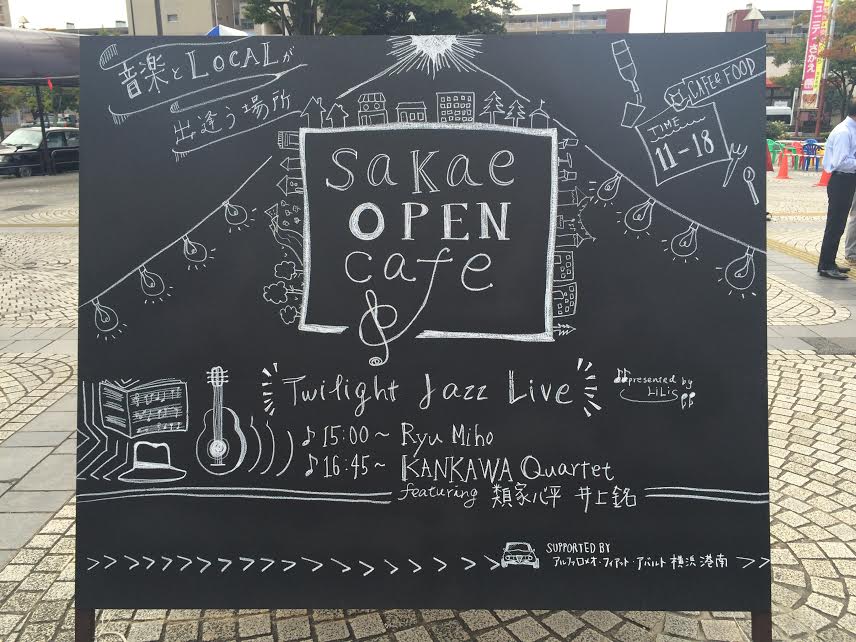 音楽とLOCALが
出逢う場所
CAFE & FOOD
TIME
11-18
Sakae
OPEN
cafe
Twilight Jazz Live
presented by
LiLiS
♪15:00~ Ryu Miho
♪16:45~ KANKAWA Quartet
featuring 類家心平 井上銘
SUPPORTED BY
アルファロメオ・フィアット・アバルト 横浜港南